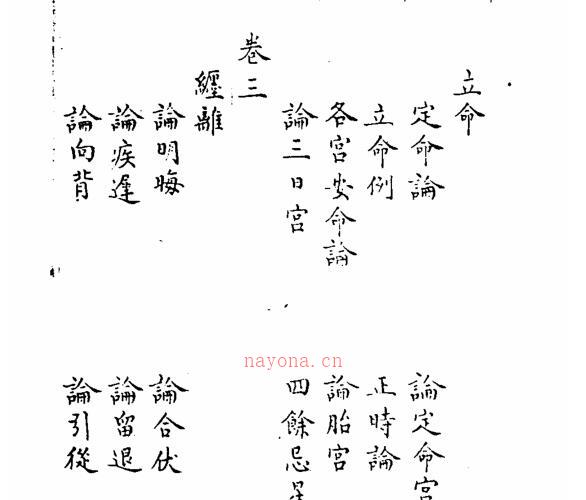 立命
定命論 論定命宮
立命例 正時論
各宮安命論 論胎宮
論三日宮 四餘忌星
卷三
纏離
論明晦 論合伏
論疾遲 論留退
論向背 論引從
nayona.cn